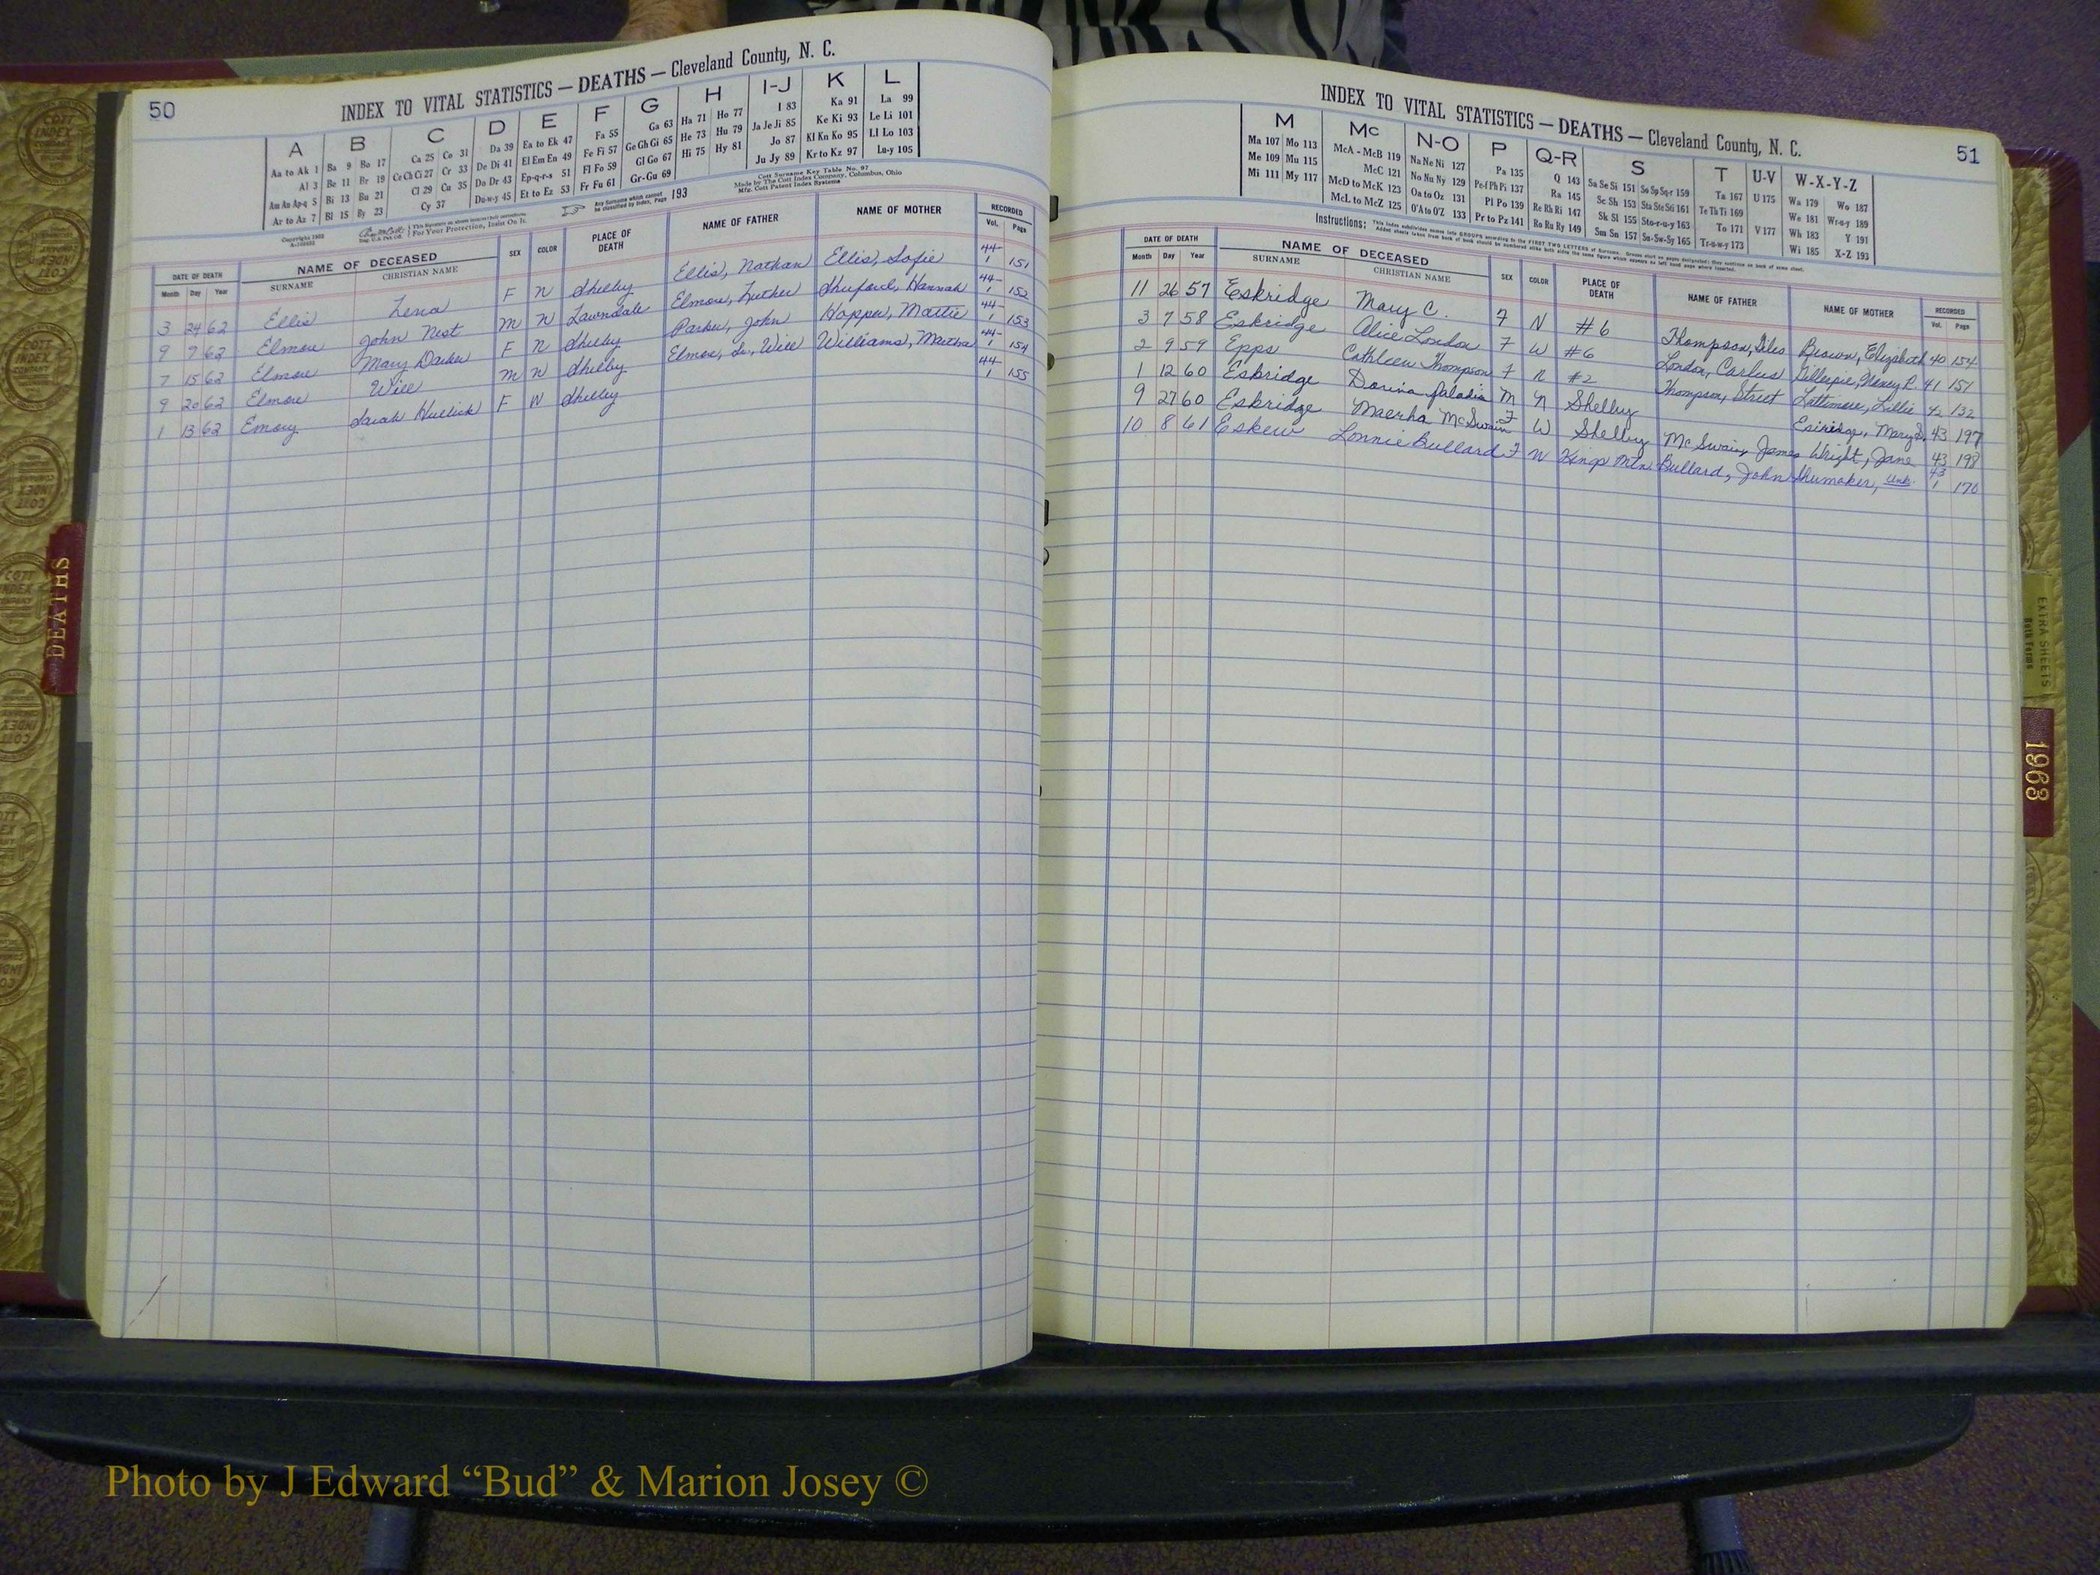 50
INDEX TO VITAL STATISTICS — DEATHS — Cleveland County, N. C.
A B C D E F G H I-J K L
Aa to Ak 1 Ba 9 Bo 17 Ca 25 Co 31 Da 39 Ea to Ek 47 Fa 55 Ga 63 Ha 71 Ho 77 I 83 Ka 91 La 99
Al 3 Be 11 Br 19 Ce Ch Ci 27 Cr 33 De Di 41 El Em En 49 Fe Fi 57 Ge Gh Gi 65 He 73 Hu 79 Ja Je Ji 85 Ke Ki 93 Le Li 101
Am An Ap-q 5 Bi 13 Bu 21 Cl 29 Cu 35 Do Dr 43 Ep-q-r-s 51 Fl Fo 59 Gl Go 67 Hi 75 Hy 81 Jo 87 Kl Kn Ko 95 Ll Lo 103
Ar to Az 7 Bl 15 By 23 Cy 37 Du-w-y 45 Et to Ez 53 Fr Fu 61 Gr-Gu 69 Ju Jy 89 Kr to Kz 97 Lu-y 105
Copyright 1952
For Your Protection, Insist On It.
Any Surname which cannot be classified by Index, Page 193
Cott Surname Key Table No. 97
Made by The Cott Index Company, Columbus, Ohio
Mfg. Cott Patent Index Systems
DATE OF DEATH NAME OF DECEASED SEX COLOR PLACE OF DEATH NAME OF FATHER NAME OF MOTHER RECORDED
Month Day Year SURNAME CHRISTIAN NAME Vol. Page
3 24 62 Ellis Lena F N Shelby Ellis, Nathan Ellis, Sofie 44-1 151
9 7 62 Elmore John Nest M N Lawndale Elmore, Luther Shuford, Hannah 44-1 152
7 15 62 Elmore Mary Parker F N Shelby Parker, John Hopper, Mattie 44-1 153
9 20 62 Elmore Will M N Shelby Elmore, Sr., Will Williams, Martha 44-1 154
1 13 62 Emory Sarah F W Shelby 44-1 155
51
INDEX TO VITAL STATISTICS — DEATHS — Cleveland County, N. C.
M Mc N-O P Q-R S T U-V W-X-Y-Z
Ma 107 Mo 113 McA - McB 119 Na Ne Ni 127 Pa 135 Q 143 Sa Se Si 151 So Sp Sq-r 159 Ta 167 U 175 Wa 179 Wo 187
Me 109 Mu 115 McC 121 No Nu Ny 129 Pe-f Ph Pi 137 Ra 145 Sc Sh 153 Sta Ste Sti 161 Te Th Ti 169 We 181 Wr-u-y 189
Mi 111 My 117 McD to McK 123 Oa to Oz 131 Pl Po 139 Re Rh Ri 147 Sk Sl 155 Sto-r-u-y 163 To 171 V 177 Wh 183 Y 191
McL to McZ 125 O'A to O'Z 133 Pr to Pz 141 Ro Ru Ry 149 Sm Sn 157 Su-Sw-Sy 165 Tr-u-w-y 173 Wi 185 X-Z 193
Instructions: This index subdivides names into GROUPS according to the FIRST TWO LETTERS of Surnames.
DATE OF DEATH NAME OF DECEASED SEX COLOR PLACE OF DEATH NAME OF FATHER NAME OF MOTHER RECORDED
Month Day Year SURNAME CHRISTIAN NAME Vol. Page
11 26 57 Eskridge Mary C. F N #6 Thompson, Giles Brown, Elizabeth 40 154
3 7 58 Eskridge Alice London F W #6 London, Carlus Gillespie, Nancy P. 41 151
2 9 59 Epps Cathleen Thompson F N #2 Thompson, Street Lattimore, Lillie 42 132
1 12 60 Eskridge Dovina M N Shelby Eskridge, Mary S. 43 197
9 27 60 Eskridge McSwain F W Shelby McSwain, James Wright, Jane 43 198
10 8 61 Eskew Lonnie Bullard F W Kings Mtn Bullard, John Shumaker, Unk. 43 1 170
DEATHS
EXTRA SHEETS
Both Forms
1963
COTT INDEX COMPANY
Photo by J Edward “Bud” & Marion Josey ©